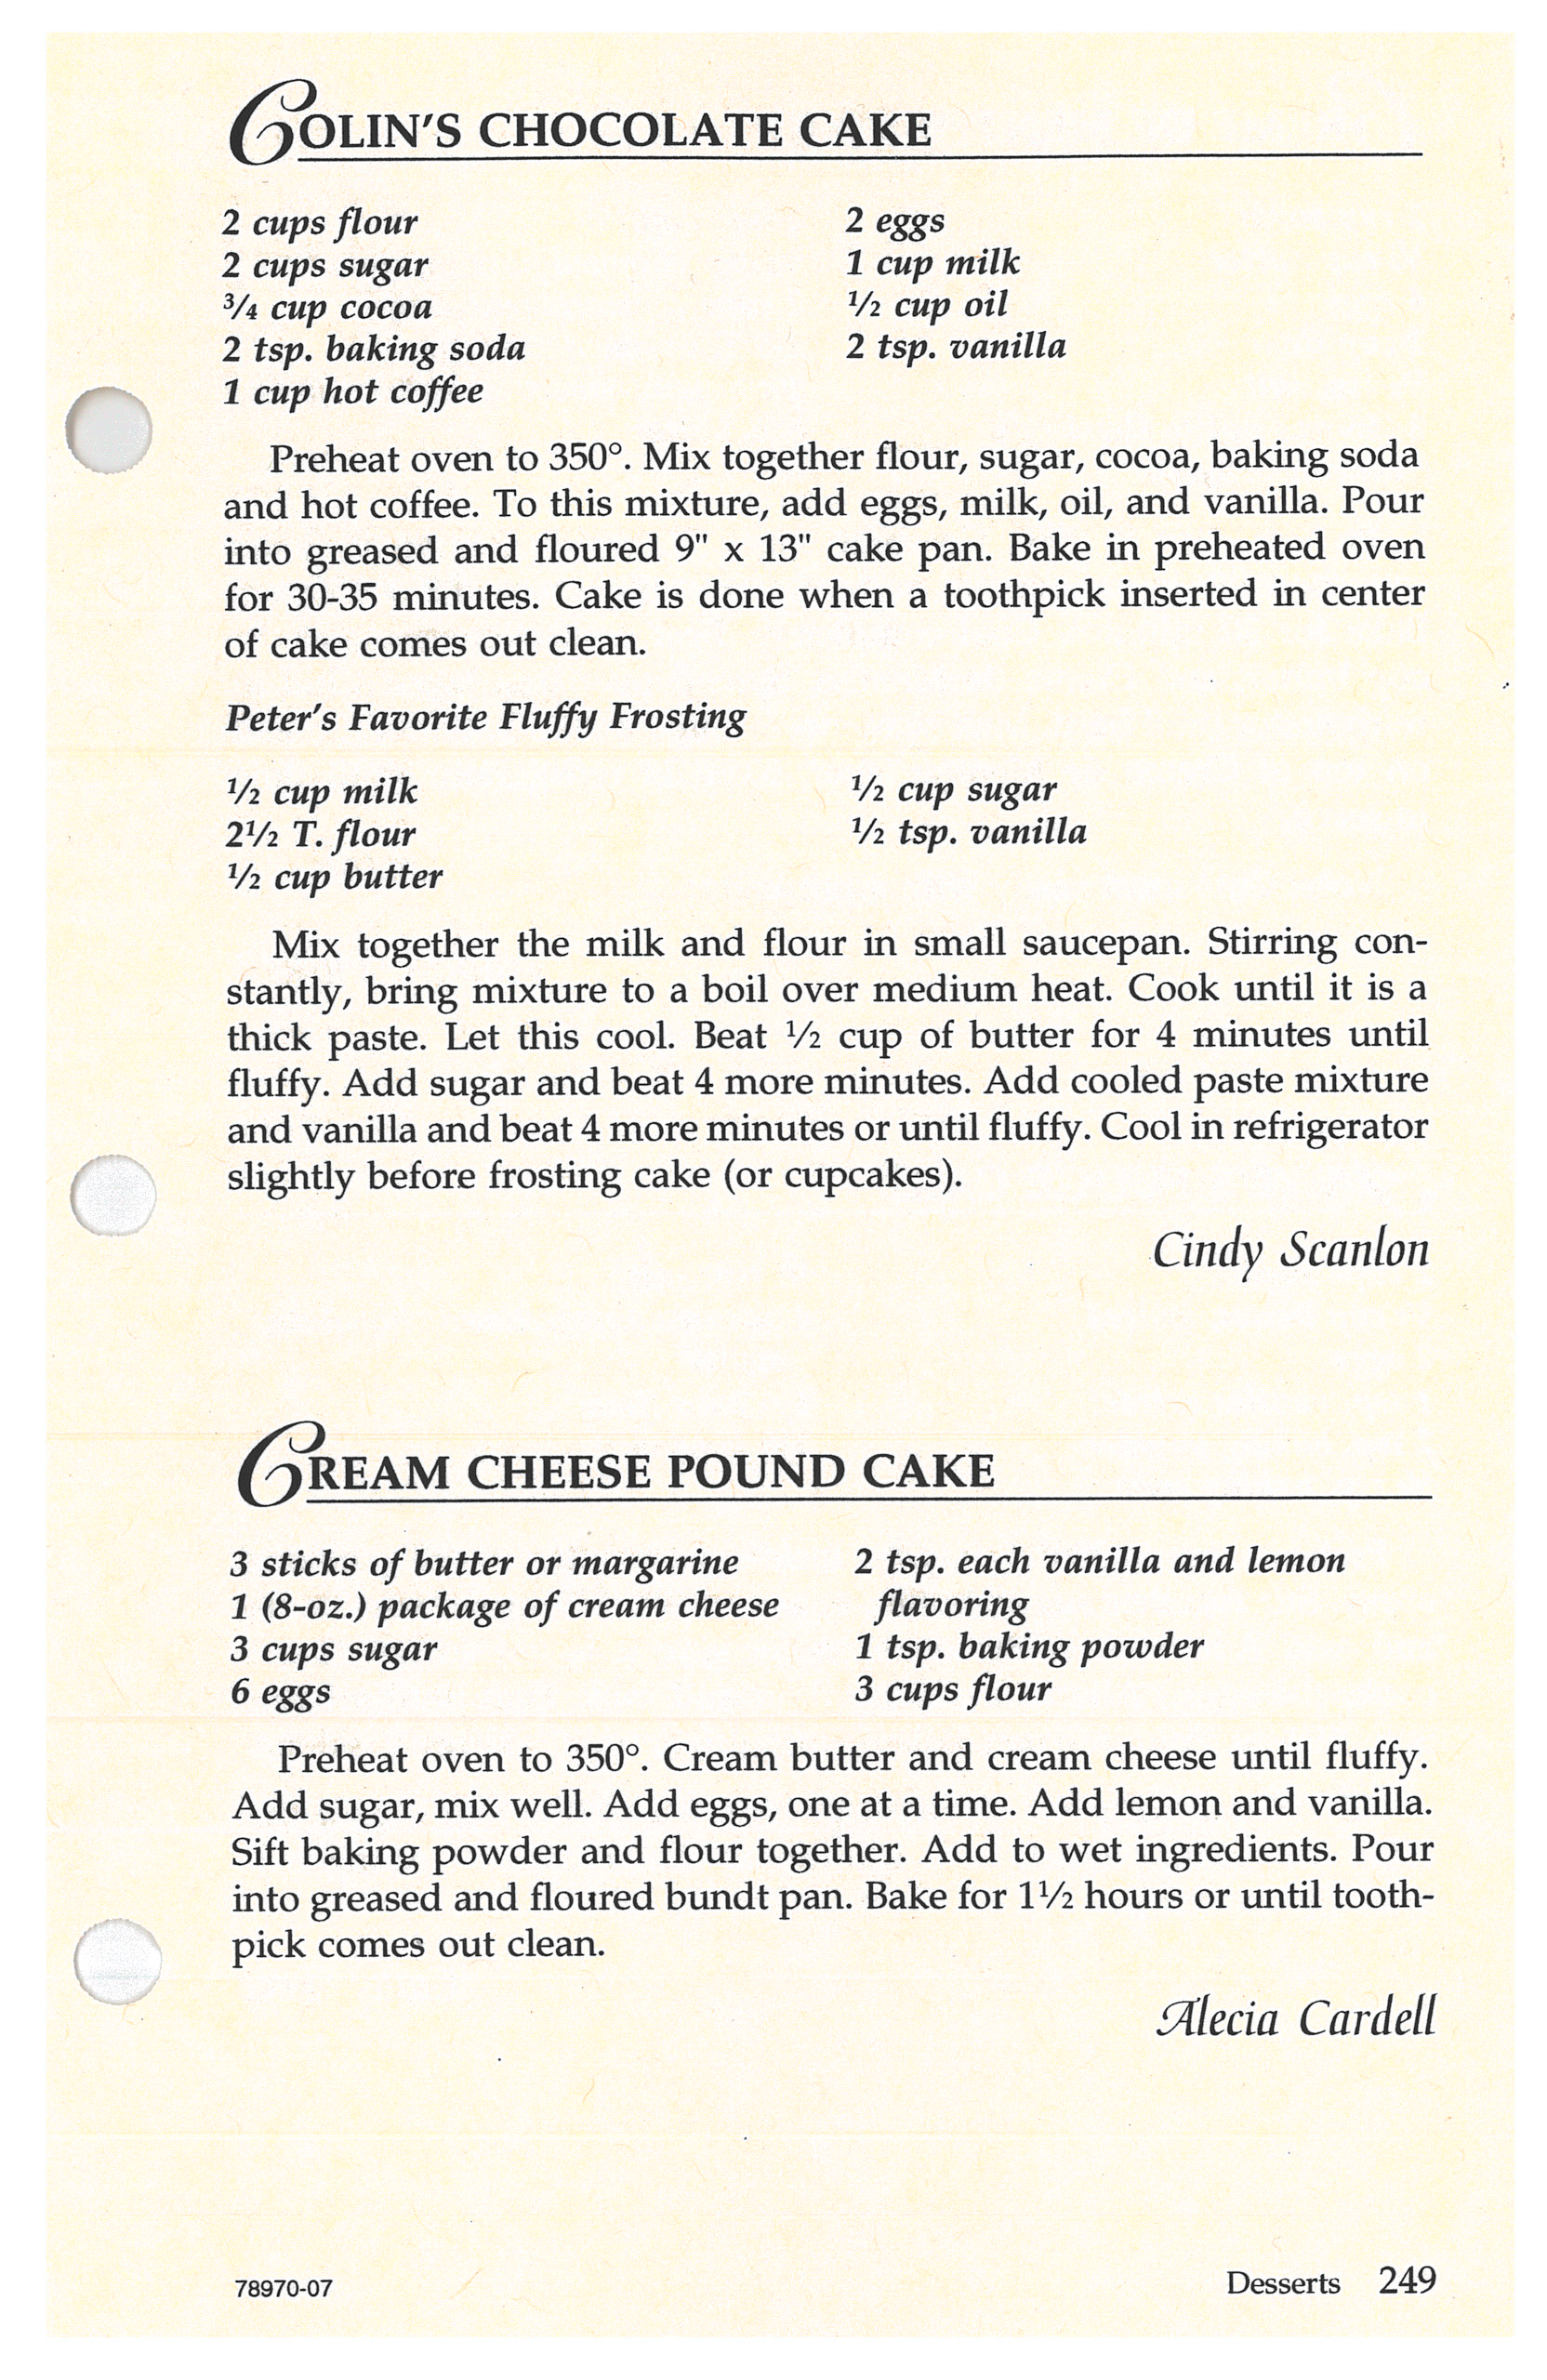 COLIN'S CHOCOLATE CAKE
2 cups flour
2 cups sugar
¾ cup cocoa
2 tsp. baking soda
1 cup hot coffee
2 eggs
1 cup milk
½ cup oil
2 tsp. vanilla
Preheat oven to 350°. Mix together flour, sugar, cocoa, baking soda
and hot coffee. To this mixture, add eggs, milk, oil, and vanilla. Pour
into greased and floured 9" x 13" cake pan. Bake in preheated oven
for 30-35 minutes. Cake is done when a toothpick inserted in center
of cake comes out clean.
Peter's Favorite Fluffy Frosting
½ cup milk
2½ T. flour
½ cup butter
½ cup sugar
½ tsp. vanilla
Mix together the milk and flour in small saucepan. Stirring con-
stantly, bring mixture to a boil over medium heat. Cook until it is a
thick paste. Let this cool. Beat ½ cup of butter for 4 minutes until
fluffy. Add sugar and beat 4 more minutes. Add cooled paste mixture
and vanilla and beat 4 more minutes or until fluffy. Cool in refrigerator
slightly before frosting cake (or cupcakes).
Cindy Scanlon
CREAM CHEESE POUND CAKE
3 sticks of butter or margarine
1 (8-oz.) package of cream cheese
3 cups sugar
6 eggs
2 tsp. each vanilla and lemon
flavoring
1 tsp. baking powder
3 cups flour
Preheat oven to 350°. Cream butter and cream cheese until fluffy.
Add sugar, mix well. Add eggs, one at a time. Add lemon and vanilla.
Sift baking powder and flour together. Add to wet ingredients. Pour
into greased and floured bundt pan. Bake for 1½ hours or until tooth-
pick comes out clean.
Alecia Cardell
78970-07
Desserts 249